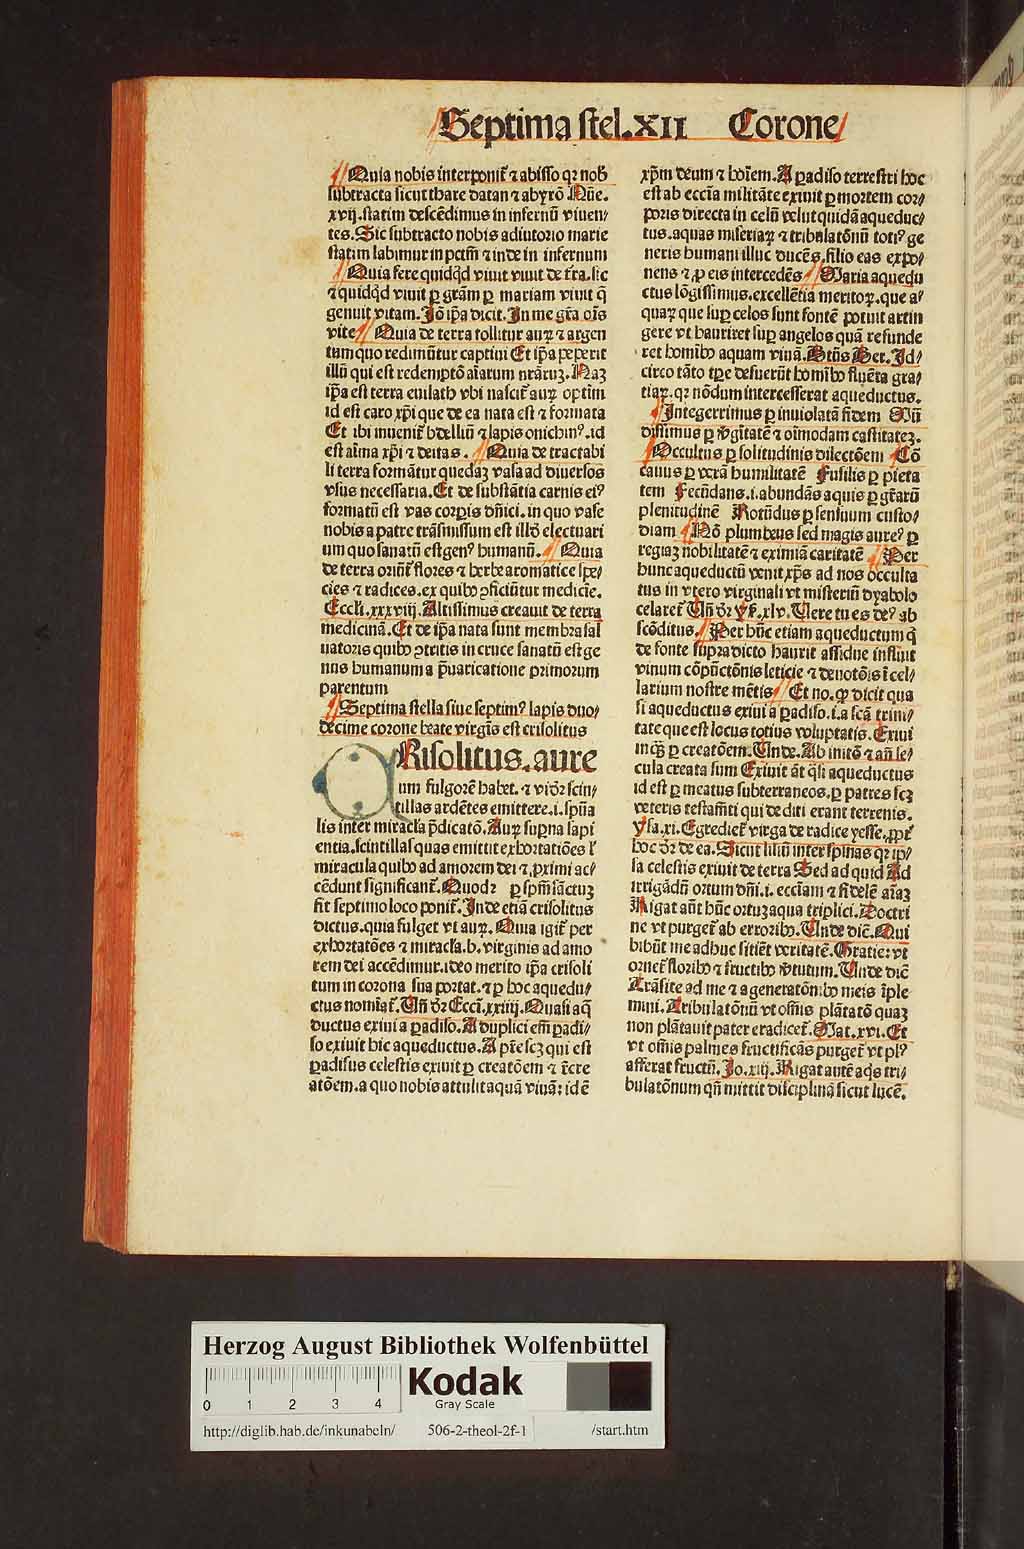 Septima stel. XII Corone
Quia nobis interponit̄ ⁊ abisso qꝛ nob̄
subtracta sicut thare datan ⁊ abyrō Nūe.
xvij. statim descēdimus in infernū viuen⸗
tes. Sic subtracto nobis adiutorio marie
statim labimur in pctm̄ ⁊ inde in infernum
Quia fere quidqͥd viuit viuit de tr̄a. sic
⁊ quidqͥd viuit ꝑ grām ꝑ mariam viuit q̄
genuit vitam. Jō ip̄a dicit. In me gr̄a oīs
vite Quia de terra tollitur auꝝ ⁊ argen
tum quo redimūtur captiui Et ip̄a peperit
illū qui est redemptō aīarum nr̄aruꝫ. Naꝫ
ip̄a est terra euilath vbi nascit̄ auꝝ optim̄
id est caro xp̄i que de ea nata est ⁊ formata
Et ibi inuenit̄ bdelliū ⁊ lapis onichinꝰ. id
est aīma xp̄i ⁊ deitas. Quia de tractabi
li terra formātur quedaꝫ vasa ad diuersos
vsus necessaria. Et de substātia carnis eiꝰ
formatū est vas corꝑis dn̄ici. in quo vase
nobis a patre trāsmissum est illđ electuari
um quo sanatū est genꝰ humanū. Quia
de terra oriūt̄ flores ⁊ herbe aromatice spe⸗
cies ⁊ radices. ex quibꝰ ꝓficiūtur medicie.
Eccli. xxxviij. Altissimus creauit de terra
medicinā. Et de ip̄a nata sunt membra sal
uatoris quibꝰ ꝓtritis in cruce sanatū est ge
nus humanum a p̄uaricatione primorum
parentum
Septima stella siue septimꝰ lapis duo⸗
decime corone beate virgīs est crisolitus
Risolitus. aure
um fulgorē habet. ⁊ vidꝛ scin⸗
tillas ardētes emittere. i. spūa
lis inter miracla p̄dicatō. Auꝝ sup̄na sapi
entia. scintillas quas emittit exhortatiōes ł
miracula quibꝰ ad amorem dei ⁊ ꝓximi ac⸗
cēdunt significant̄. Quodꝛ ꝑ spm̄ sāctuꝫ
fit septimo loco ponit̄. Inde etiā crisolitus
dictus. quia fulget vt auꝝ. Quia igit̄ per
exhortatōes ⁊ miracla. b. virginis ad amo
rem dei accēdimur. ideo merito ip̄a crisoli
tum in corona sua portat. ⁊ ꝑ hoc aquedu⸗
ctus nomīat̄. Un̄ dꝛ Eccī. xxiiij. Quasi aq̄
ductus exiui a ꝑadiso. A duplici em̄ ꝑadi⸗
so exiuit hic aqueductus. A pr̄e scꝫ qui est
ꝑadisus celestis exiuit ꝑ creatōem ⁊ r̄cre
atōem. a quo nobis attulit aquā viuā: id ē
xp̄m deum ⁊ hoīem. A ꝑadiso terrestri hoc
est ab eccīa militāte exiuit ꝑ mortem cor⸗
poris directa in celū velut quidā aqueduc⸗
tus. aquas miseriaꝝ ⁊ tribulatōnū totiꝰ ge
neris humani illuc ducēs. filio eas expo⸗
nens ⁊ ꝓ eis intercedēs Maria aquedu
ctus lōgissimus. excellētia meritoꝝ. que a⸗
quaꝝ que suꝑ celos sunt fontē potuit attin
gere vt hauriret suꝑ angelos quā refunde
ret homībꝰ aquam viuā. Btūs Ber. Id⸗
circo tāto tꝑe defuerūt homībꝰ fluēta gra⸗
tiaꝝ. qꝛ nōdum intercesserat aqueductus.
Integerrimus ꝑ inuiolatā fidem Mū
dissimus ꝑ v̄gītatē ⁊ oīmodam castitateꝫ.
Occultus ꝑ solitudinis dilectōem Cō
cauus ꝑ verā humilitatē Fusilis ꝑ pieta
tem Fecūdans. i. abundās aquis ꝑ gr̄arū
plenitudinē Rotūdus ꝑ sensuum custo⸗
diam Nō plumbeus sed magis aureꝰ ꝑ
regiaꝫ nobilitatē ⁊ eximiā caritatē Per
hunc aqueductū venit xp̄s ad nos occulta
tus in vtero virginali vt misteriū dyabolo
celaret̄ Un̄ dꝛ ys. xlv. Uere tu es deꝰ ab
scōditus. Per hūc etiam aqueductum q̄
de fonte supradicto haurit assidue influit
vinum cōpūctōnis leticie ⁊ deuotōis ī cel⸗
larium nostre mētis Et no. ꝙ dicit qua
si aqueductus exiui a ꝑadiso. i. a scā trini⸗
tate que est locus totius voluptatis. Exiui
inqͣꝫ ꝑ creatōem. Unde. Ab initō ⁊ an̄ se⸗
cula creata sum Exiuit āt qͣsi aqueductus
id est ꝑ meatus subterraneos. ꝑ patres scꝫ
veteris testam̄ti qui dediti erant terrenis.
Ysa. xi. Egrediet̄ virga de radice yesse. ꝓpt̄
hoc dꝛ de ea. Sicut liliū inter spinas qꝛ ip⸗
sa celestis exiuit de terra Sed ad quid Ad
irrigādū ortum dn̄i. i. eccīam ⁊ fidelē aīaꝫ
Rigat aūt hūc ortuꝫ aqua triplici. Doctri
ne vt purget̄ ab erroribꝰ. Unde dic̄. Qui
bibūt me adhuc sitiēt veritatē. Gratie: vt
ornet̄ floribꝰ ⁊ fructibꝰ v̄tutum. Unde dic̄
Trāsite ad me ⁊ a generatōnibꝰ meis īple
mini. Tribulatōnū vt om̄is plātatō quaꝫ
non plātauit pater eradicet̄. Mat. xvi. Et
vt om̄is palmes fructificās purget̄ vt plꝰ
afferat fructū. Jo. xiij. Rigat autē aq̄s tri⸗
bulatōnum qn̄ mittit disciplinā sicut lucē.
Herzog August Bibliothek Wolfenbüttel
Kodak
Gray Scale
0 1 2 3 4
http://diglib.hab.de/inkunabeln/ 506-2-theol-2f-1 /start.htm